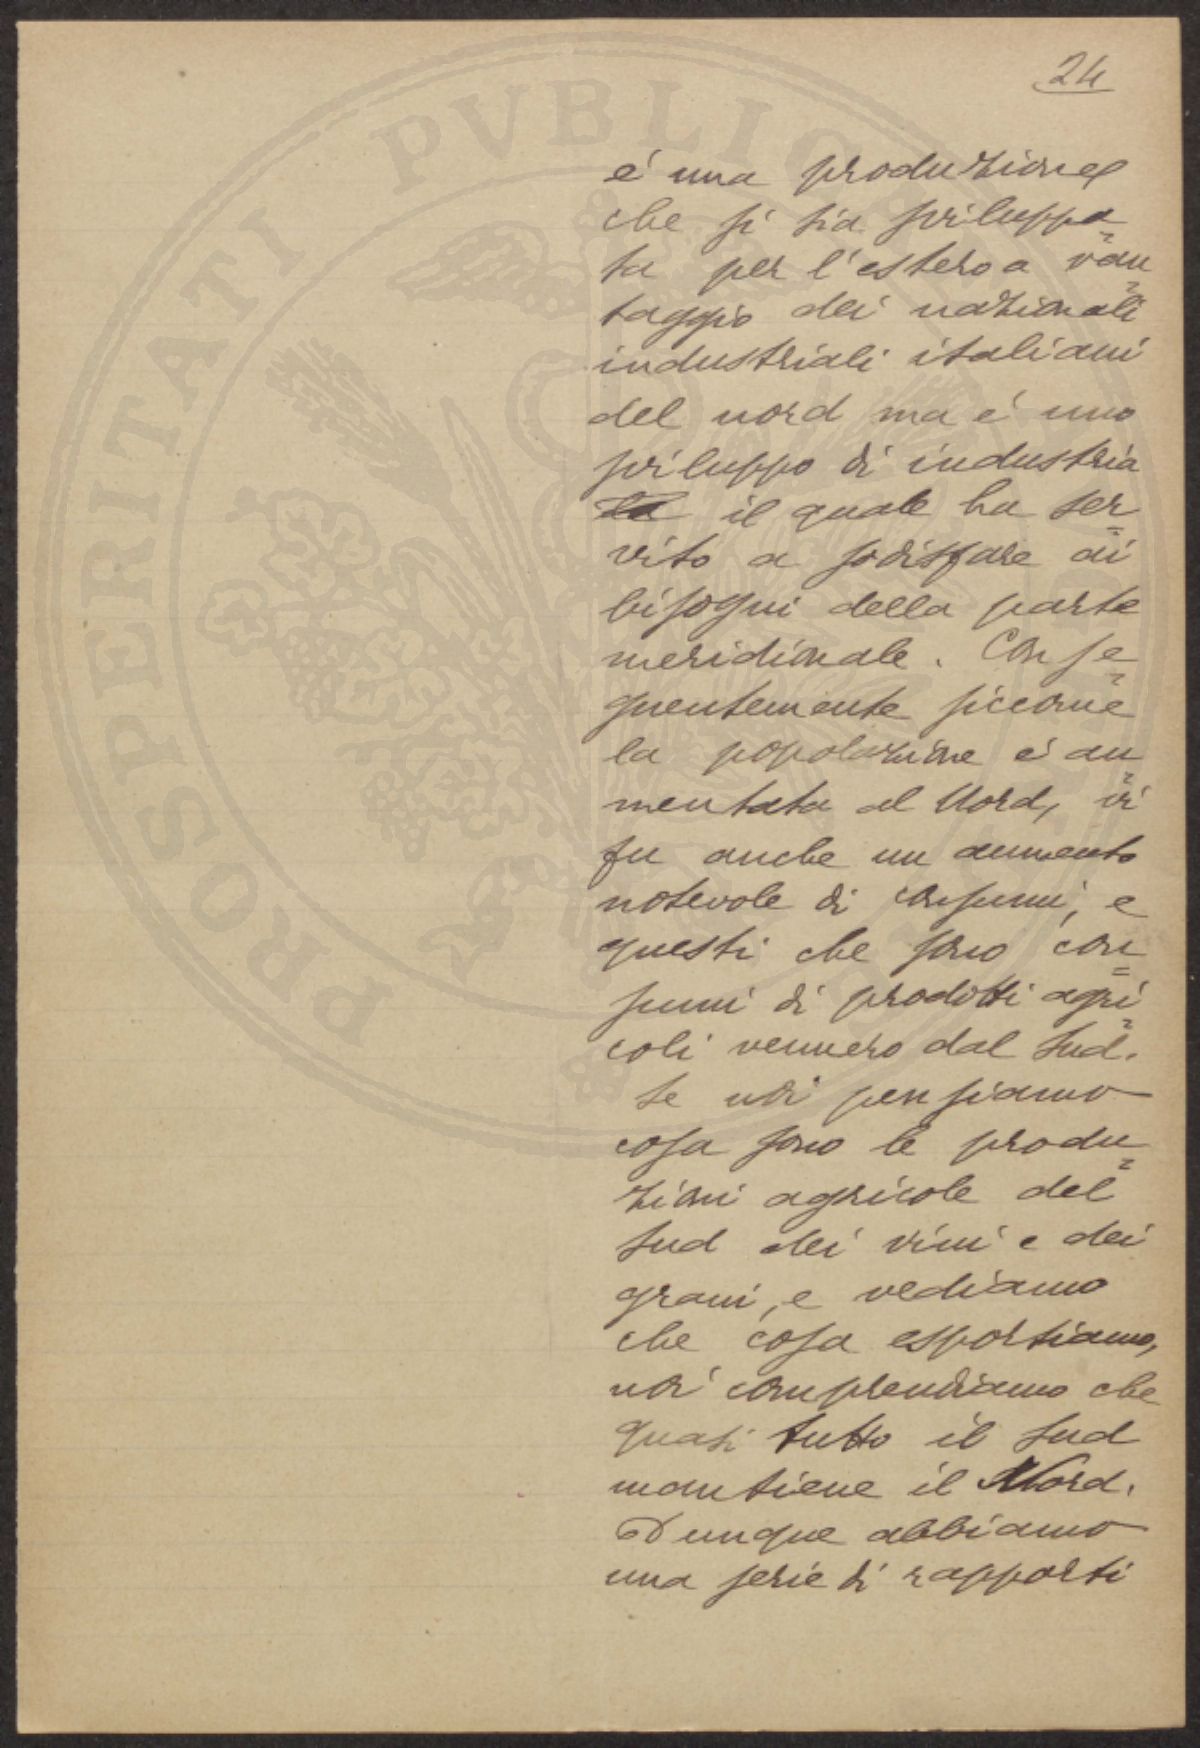 24
é una produzione
che si sia sviluppa=
ta per l'estero a van=
taggio dei nazionali
industriali italiani
del nord ma é uno
sviluppo di industria
la il quale ha ser=
vito a sodisfare ai
bisogni della parte
meridionale. Conse=
guentemente siccome
la popolazione é au=
mentata al Nord, vi
fu anche un aumento
notevole di consumi, e
questi che sono con=
sumi di prodotti agri=
coli vennero dal Sud.
Se noi pensiamo
cosa sono le produ=
zioni agricole del
Sud dei vini e dei
grani, e vediamo
che cosa esportiamo,
noi comprendiamo che
quasi tutto il Sud
mantiene il Nord.
Dunque abbiamo
una serie di rapporti
PROSPERITATI PVBLIC